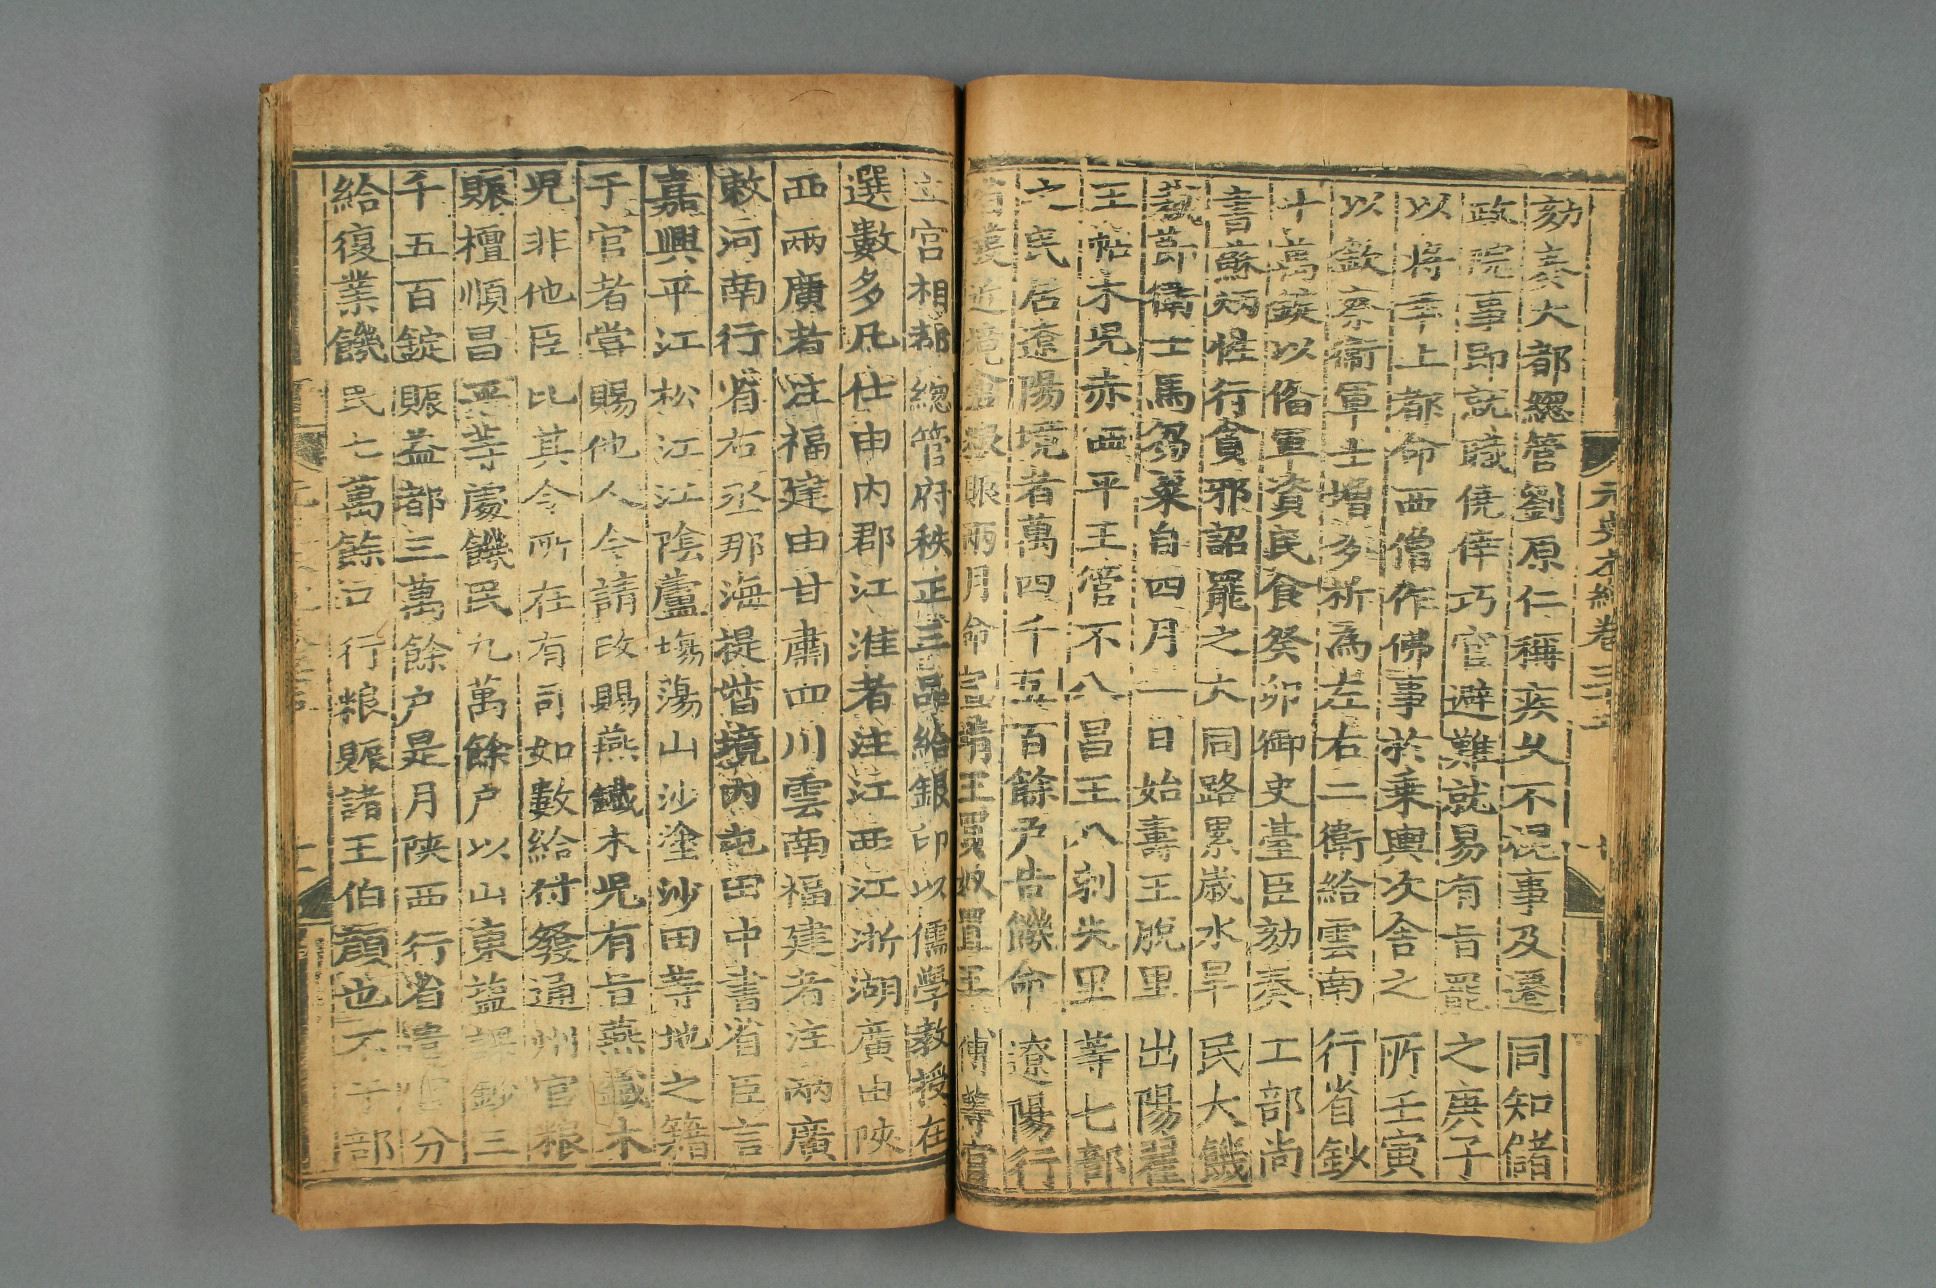 劾奏大都總管劉原仁稱疾久不視事及遷同知儲
政院事即就職僥倖巧宦避難就易有旨罷之庚子
以將幸上都命西僧作佛事於乘輿次舍之所壬寅
以欽察衞軍士增多析為左右二衞給雲南行省鈔
十萬錠以備軍資民食癸卯御史臺臣劾奏工部尚
書蘇炳性行貪邪詔罷之大同路累歲水旱民大饑
裁節衞士馬芻粟自四月一日始壽王脫里出陽翟
王帖木兒赤西平王管不八昌王八剌失里等七部
之民居遼陽境者萬四千五百餘戶告饑命遼陽行
近境倉粮賑兩月命宣靖王買奴置王傅等官
立宮相都總管府秩正三品給銀印以儒學教授在
選數多凡仕由內郡江淮者注江西江浙湖廣由陝
西兩廣者注福建由甘肅四川雲南福建者注兩廣
敕河南行省右丞那海提督境內屯田中書省臣言
嘉興平江松江江陰蘆場蕩山沙塗沙田等地之籍
于官者嘗賜他人今請改賜燕鐵木兒有旨燕鐵木
兒非他臣比其令所在有司如數給付發通州官粮
賑檀順昌平等處饑民九萬餘戶以山東鹽課鈔三
千五百錠賑益都三萬餘戶是月陝西行省遣官分
給復業饑民七萬餘口行粮賑諸王伯顏也不干部
元史本紀卷三十五